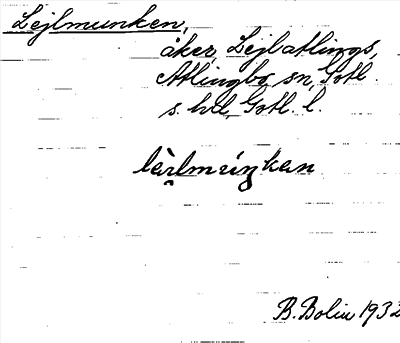 Lejlmunken,
åker, Lejlatlings,
Atlingbo sn, Gotl.
s. hd, Gotl. l.
B. Bolin 1932